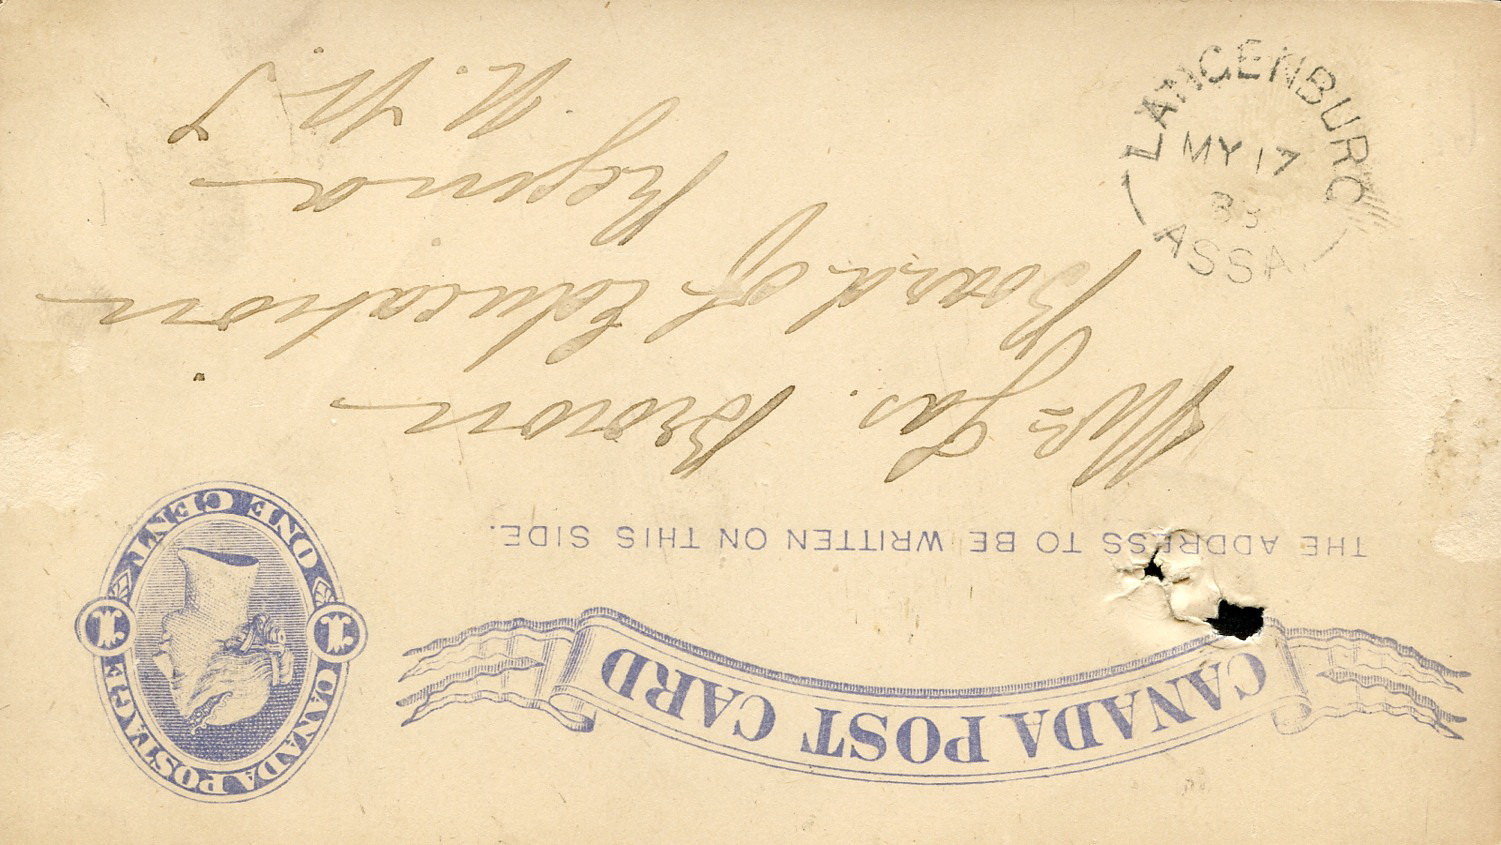 CANADA POST CARD
CANADA POSTAGE
ONE CENT
1 1
THE ADDRESS TO BE WRITTEN ON THIS SIDE.
Mr Jas. Brown
Board of Education
Regina
N. W. T
LANGENBURG
MY 17
ASSA.